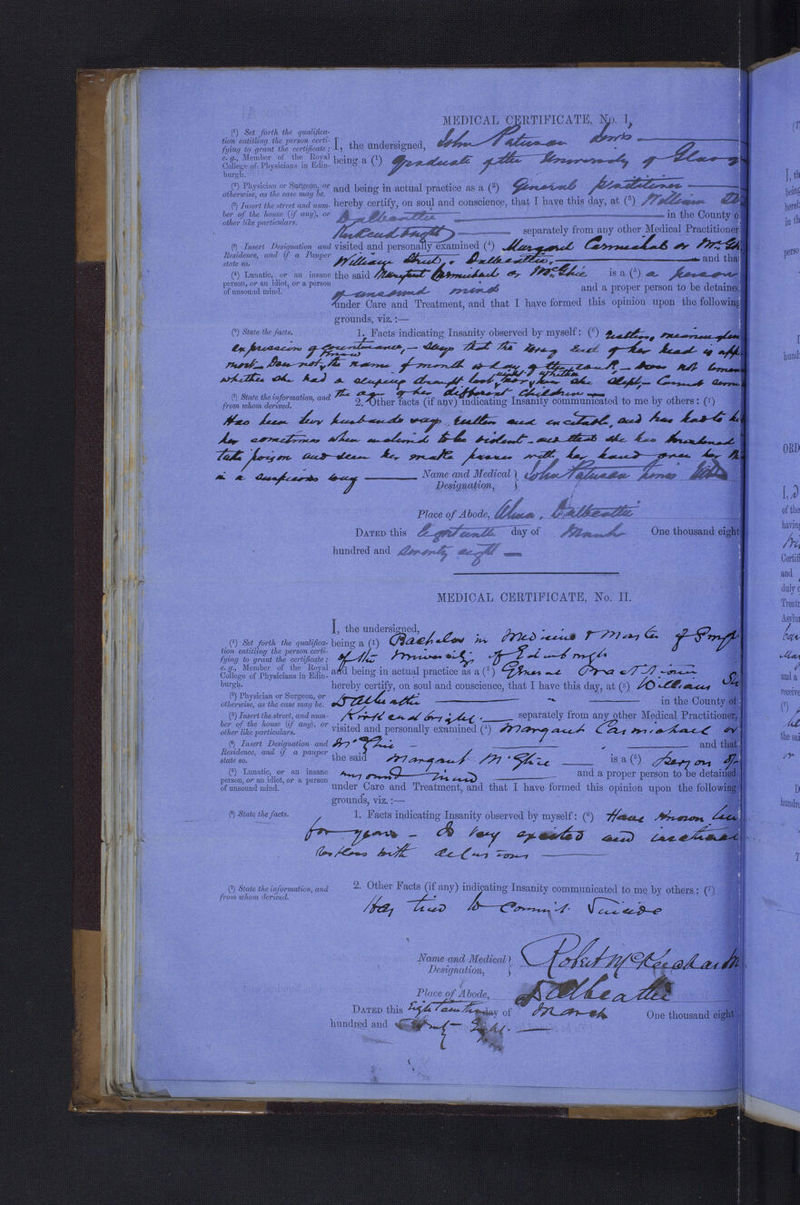 MEDICAL CERTIFICATE, No. I,
(¹) Set forth the qualifica-
tion entitling the person certi-
fying to grant the certificate;
e.g., Member of the Royal
College of Physicians in Edin-
burgh.
I, the undersigned, John Paterson Lewis
being a (¹) Graduate of the University of Glasg
(²) Physician or Surgeon, or
otherwise, as the case may be.
and being in actual practice as a (²) General Practitioner
(³) Insert the street and num-
ber of the house (if any), or
other like particulars.
hereby certify, on soul and conscience, that I have this day, at (³) William St
Dalbeattie in the County o
Kirkcudbright separately from any other Medical Practitioner
(⁴) Insert Designation and
Residence, and if a Pauper
state so.
visited and personally examined (⁴) Margaret Carmichael or McGh
William Street, Dalbeattie, and tha
(⁵) Lunatic, or an insane
person, or an idiot, or a person
of unsound mind.
the said Margaret Carmichael or McGhie is a (⁵) a person
of unsound mind and a proper person to be detaine
under Care and Treatment, and that I have formed this opinion upon the following
grounds, viz.:—
(⁶) State the facts.
1. Facts indicating Insanity observed by myself: (⁶) restless, meaningless
expression of countenance,— says that the being end of her head is off
most. Does not know the name of month or day of the week.— Does not
whether she had a sleeping draught last night or whether she slept,— Cannot
the age of her different children
(⁷) State the information, and
from whom derived.
2. Other facts (if any) indicating Insanity communicated to me by others: (⁷)
Has been her husband says restless and excitable, and has had to
her sometimes when inclined to be violent. and that she has threatened
take poison and seen her make passes with her hand over her
in a suspicious way
Name and Medical
Designation,
John Paterson Lewis
Place of Abode, Alma, Dalbeattie
DATED this Eighteenth day of March One thousand eight
hundred and seventy eight
MEDICAL CERTIFICATE, No. II.
(¹) Set forth the qualifica-
tion entitling the person certi-
fying to grant the certificate;
e.g., Member of the Royal
College of Physicians in Edin-
burgh.
I, the undersigned,
being a (¹) Bachelor in Medicine & Master of Surg
of the University of Edinburgh
(²) Physician or Surgeon, or
otherwise, as the case may be.
and being in actual practice as a (²) General Practitioner
hereby certify, on soul and conscience, that I have this day, at (³) William St
Dalbeattie in the County of
(³) Insert the street, and num-
ber of the house (if any), or
other like particulars.
Kirkcudbright separately from any other Medical Practitioner,
(⁴) Insert Designation and
Residence, and if a pauper
state so.
visited and personally examined (⁴) Margaret Carmichael or
McGhie and that
(⁵) Lunatic, or an insane
person, or an idiot, or a person
of unsound mind.
the said Margaret McGhie is a (⁵) Person of
unsound mind and a proper person to be detained
under Care and Treatment, and that I have formed this opinion upon the following
grounds, viz.:—
(⁶) State the facts.
1. Facts indicating Insanity observed by myself: (⁶) Have known her
for years - Is very excited and irrational
restless with delusions
(⁷) State the information, and
from whom derived.
2. Other Facts (if any) indicating Insanity communicated to me by others: (⁷)
Has tried to Commit Suicide
Name and Medical
Designation,
Robert
Place of Abode, Dalbeattie
DATED this Eighteenth day of March One thousand eight
hundred and Seventy Eight.